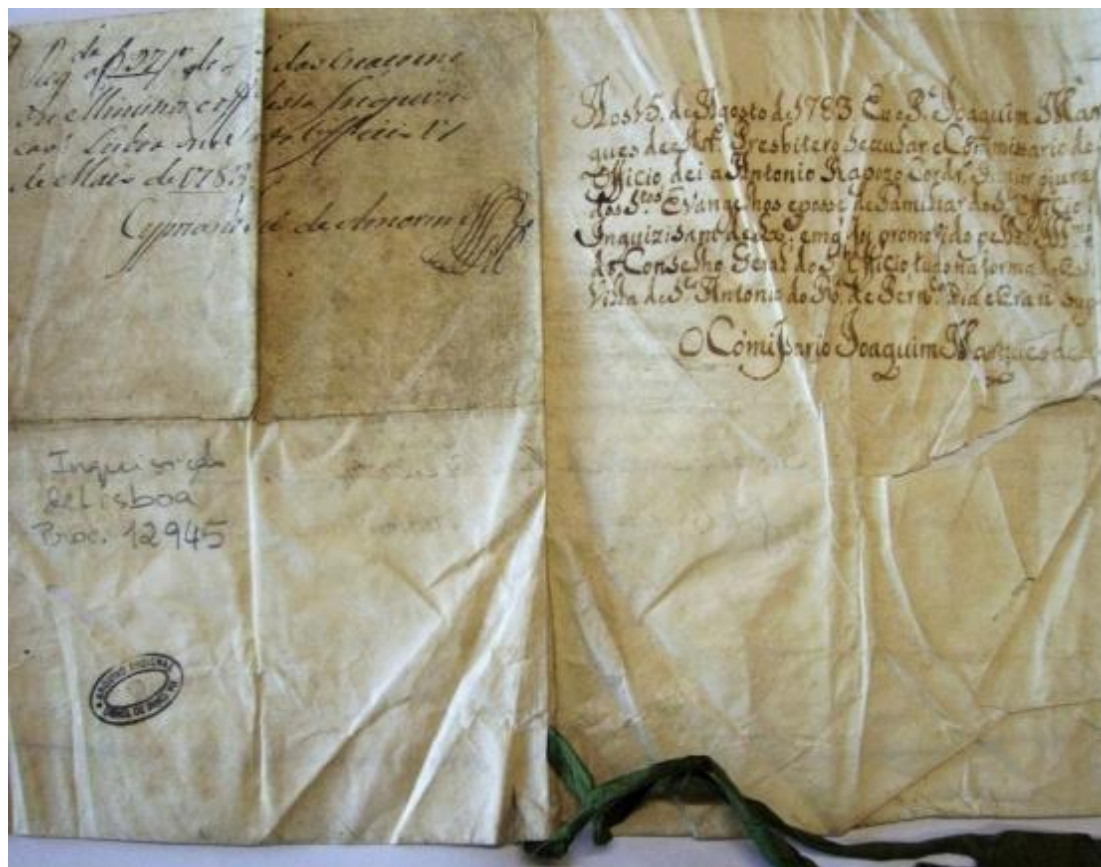 Reg.da a f 271 v.o de das Creaçoens
de Ministros e off desta Inquiziçaõ
Lisboa no S.to Officio 21
de Maio de 1783
Cypriano Jozé de Amorim
Inquisição
de Lisboa
Proc. 12945
Aos 15. de Agosto de 1783 Eu o P.e Joaquim Mar
ques de Presbitero Secular e Commissario do
Officio dei a Antonio Rapozo Cordr.o Junior o jura
dos S.tos Evangelhos e posse de Familiar do S.to Officio
Inquizisam de Lx.a em q foi promovido pello
do Conselho Geral do S.to Officio tudo na forma do
Vista de S.to Antonio do R.e de Pern.co Dia e Era ut Sup
O Comissario Joaquim Marques de